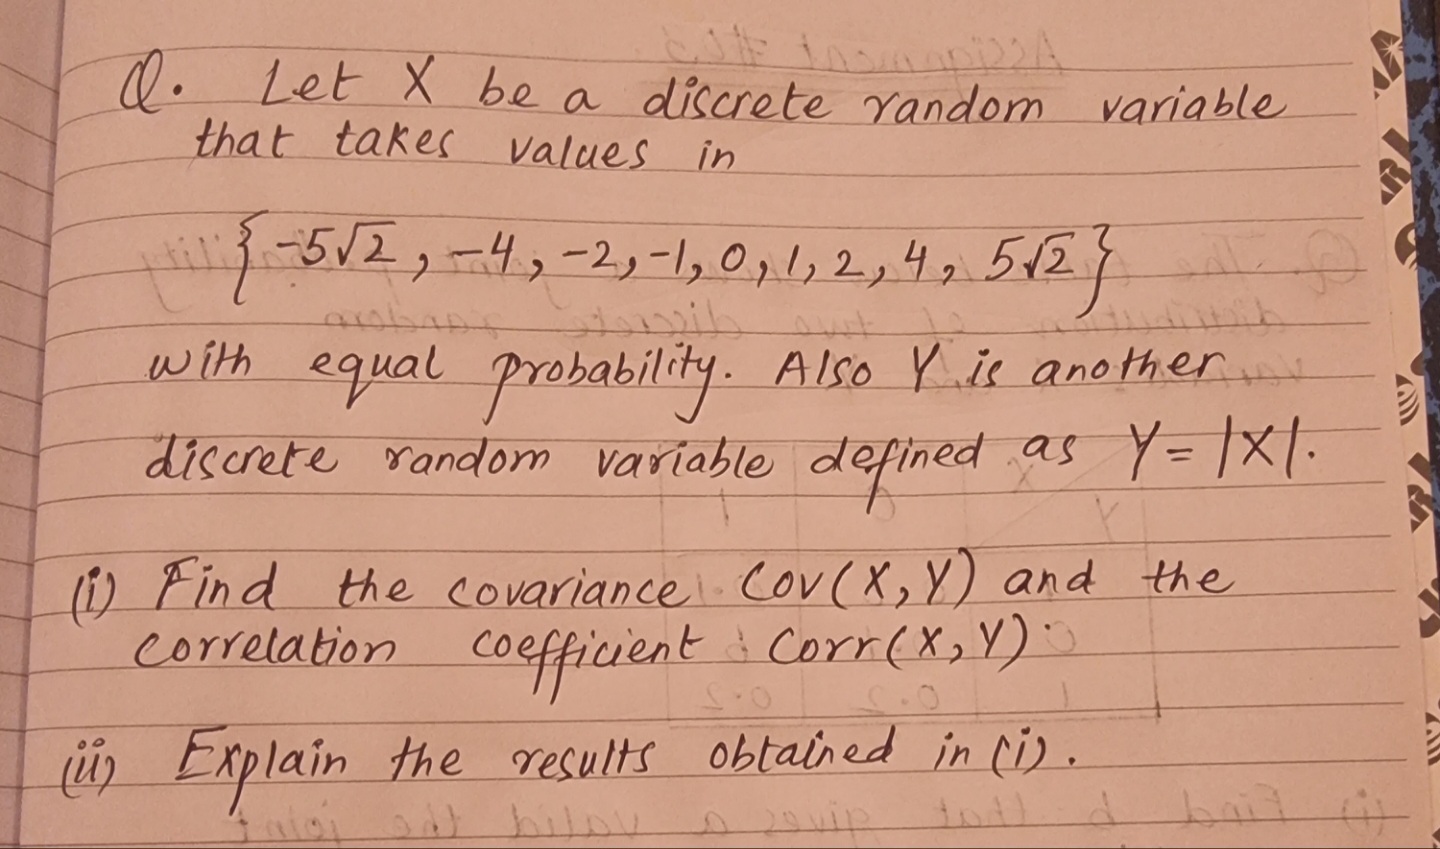 Q. Let X be a discrete random variable
that takes values in
{-5√2, -4, -2, -1, 0, 1, 2, 4, 5√2}
with equal probability. Also Y is another
discrete random variable defined as Y = |X|.
(i) Find the covariance Cov(X, Y) and the
correlation coefficient Corr(X, Y).
(ii) Explain the results obtained in (i).